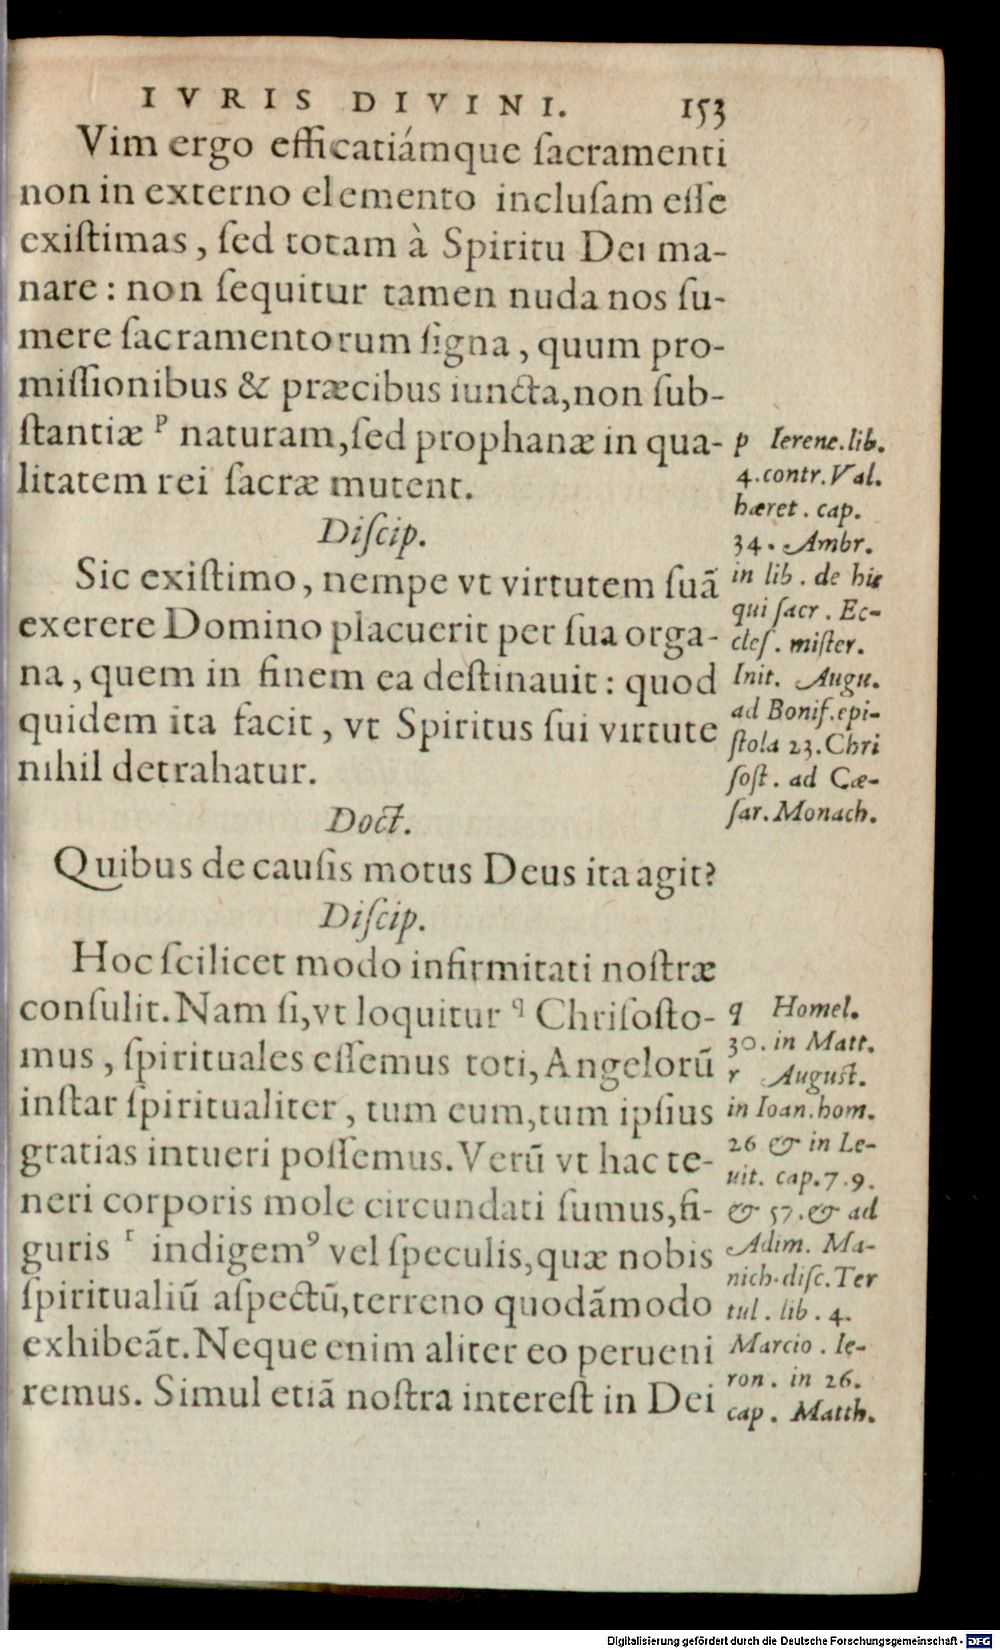 IVRIS DIVINI. 153
Vim ergo efficatiámque ſacramenti
non in externo elemento incluſam eſſe
exiſtimas, ſed totam à Spiritu Dei ma-
nare: non ſequitur tamen nuda nos ſu-
mere ſacramentorum ſigna, quum pro-
miſſionibus & præcibus iuncta, non ſub-
ſtantiæ ᵖ naturam, ſed prophanæ in qua-
litatem rei ſacræ mutent.
Diſcip.
Sic exiſtimo, nempe vt virtutem ſuã
exerere Domino placuerit per ſua orga-
na, quem in finem ea deſtinauit: quod
quidem ita facit, vt Spiritus ſui virtute
nihil detrahatur.
Doct.
Quibus de cauſis motus Deus ita agit?
Diſcip.
Hoc ſcilicet modo infirmitati noſtræ
conſulit. Nam ſi, vt loquitur q Chriſoſto-
mus, ſpirituales eſſemus toti, Angelorũ
inſtar ſpiritualiter, tum eum, tum ipſius
gratias intueri poſſemus. Verũ vt hac te-
neri corporis mole circundati ſumus, fi-
guris ʳ indigemꝰ vel ſpeculis, quæ nobis
ſpiritualiũ aſpectũ, terreno quodãmodo
exhibeãt. Neque enim aliter eo perueni
remus. Simul etiã noſtra intereſt in Dei
p Ierene. lib.
4. contr. Val.
hæret. cap.
34. Ambr.
in lib. de his
qui ſacr. Ec-
cleſ. miſter.
Init. Augu.
ad Bonif. epi-
ſtola 23. Chri
ſoſt. ad Cæ-
ſar. Monach.
q Homel.
30. in Matt.
r Auguſt.
in Ioan. hom.
26 & in Le-
uit. cap. 7. 9.
& 57. & ad
Adim. Ma-
nich. diſc. Ter
tul. lib. 4.
Marcio. Ie-
ron. in 26.
cap. Matth.
Digitalisierung gefördert durch die Deutsche Forschungsgemeinschaft - DFG